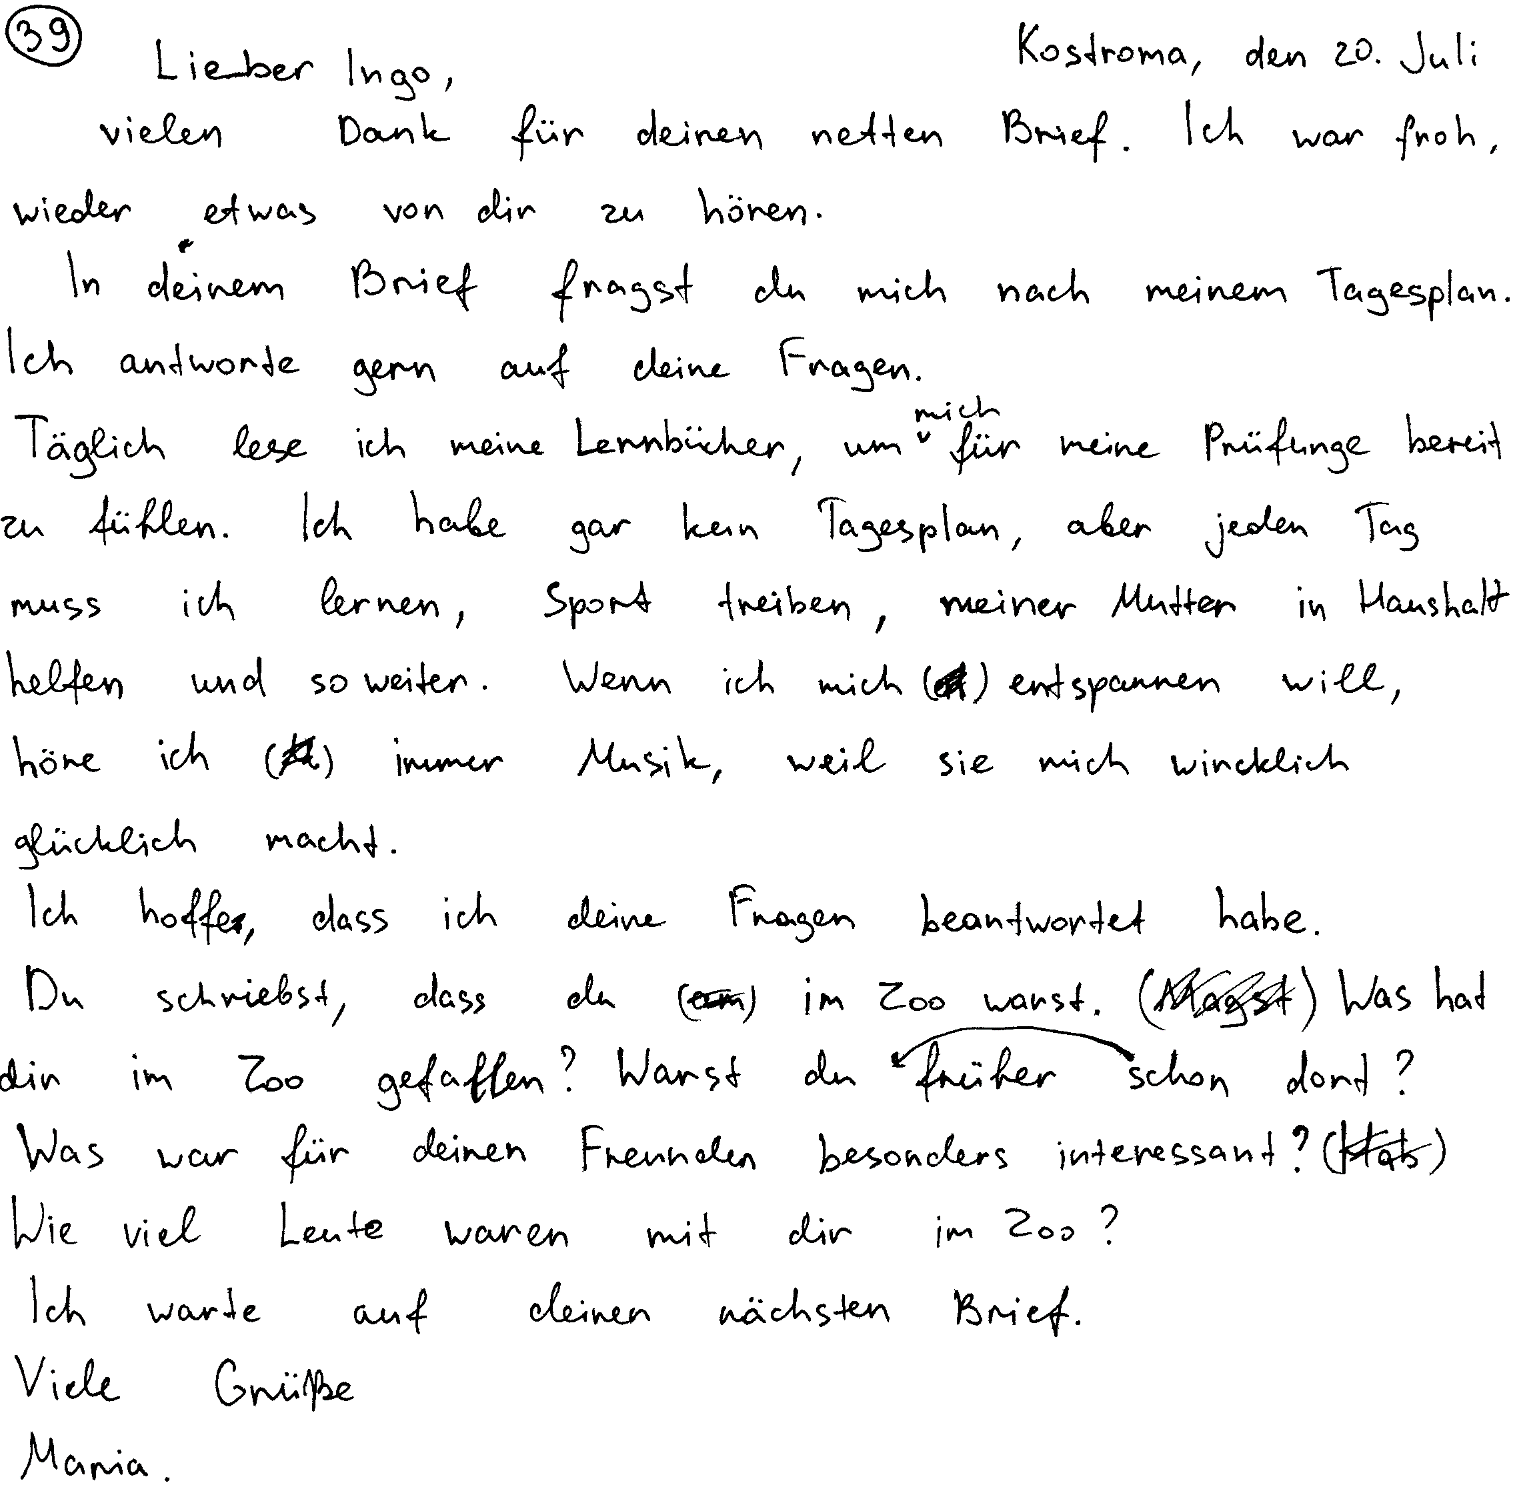 39
Kostroma, den 20. Juli
Lieber Ingo,
vielen Dank für deinen netten Brief. Ich war froh,
wieder etwas von dir zu hören.
In deinem Brief fragst du mich nach meinem Tagesplan.
Ich antworte gern auf deine Fragen.
mich
Täglich lese ich meine Lernbücher, um für meine Prüfunge bereit
zu fühlen. Ich habe gar kein Tagesplan, aber jeden Tag
muss ich lernen, Sport treiben, meiner Mutter in Haushalt
helfen und so weiter. Wenn ich mich ( ) entspannen will,
höre ich ( ) immer Musik, weil sie mich wircklich
glücklich macht.
Ich hoffe, dass ich deine Fragen beantwortet habe.
Du schriebst, dass du (am) im Zoo warst. (Magst) Was hat
dir im Zoo gefallen? Warst du früher schon dort?
Was war für deinen Freunden besonders interessant? ( )
Wie viel Leute waren mit dir im Zoo?
Ich warte auf deinen nächsten Brief.
Viele Grüße
Maria.